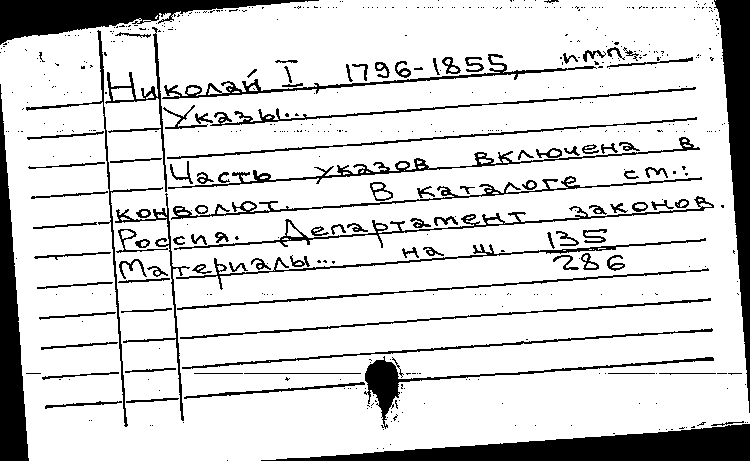 Николай I, 1796-1855, имп.
Указы...
Часть указов включена в
конволют. В каталоге см.:
Россия. Департамент законов.
Материалы... на ш. 135
286